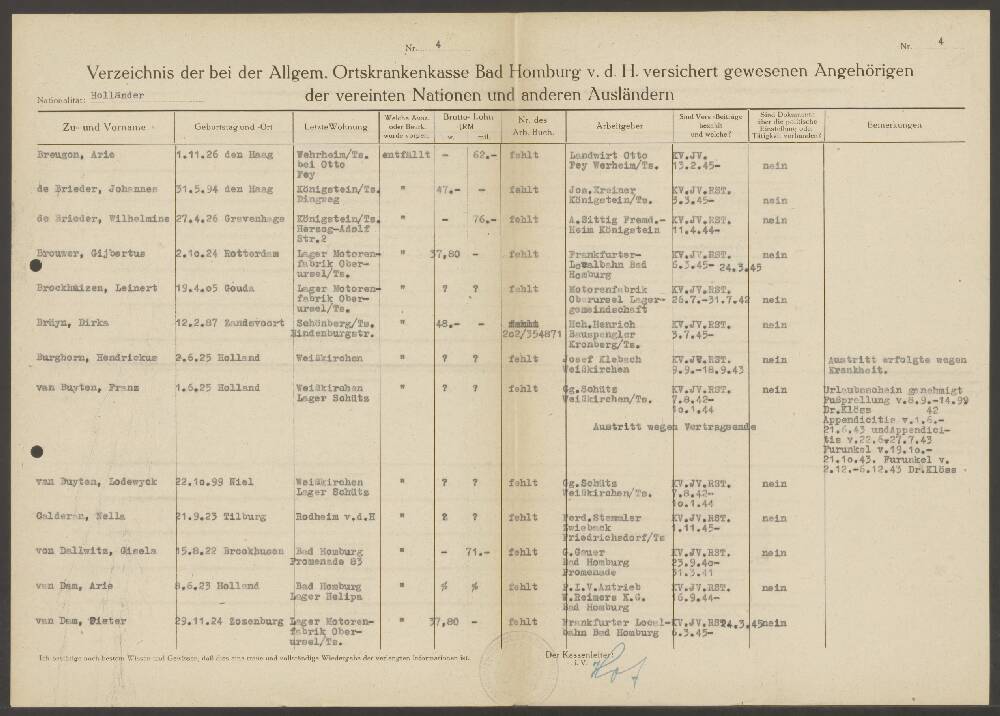 Nr. 4
Nr. 4
Verzeichnis der bei der Allgem. Ortskrankenkasse Bad Homburg v. d. H. versichert gewesenen Angehörigen
Nationalität: Holländer
der vereinten Nationen und anderen Ausländern
Zu- und Vorname Geburtstag und -Ort Letzte Wohnung Welche Ausw. oder Beurk. wurde vorgew. Brutto-Lohn RM w. mtl. Nr. des Arb. Buch. Arbeitgeber Sind Vers.-Beiträge bezahlt und welche? Sind Dokumente über die politische Einstellung oder Tätigkeit vorhanden? Bemerkungen
Breugon, Arie 1.11.26 den Haag Wehrheim/Ts. entfällt - 62.- fehlt Landwirt Otto KV.JV.
bei Otto Fey Werheim/Ts. 13.2.45- nein
Fey
de Brieder, Johannes 31.5.94 den Haag Königstein/Ts. " 47.- - fehlt Jos.Kreiner KV.JV.RST.
Dingweg Königstein/Ts. 3.3.45- nein
de Brieder, Wilhelmine 27.4.26 Gravenhage Königstein/Ts. " - 76.- fehlt A.Sittig Fremd.- KV.JV.RST. nein
Herzog-Adolf Heim Königstein 11.4.44-
Str.2
Brouwer, Gijbertus 2.10.24 Rotterdam Lager Motoren- " 37,80 - fehlt Frankfurter- KV.JV.RST. nein
fabrik Ober- Lokalbahn Bad 6.3.45- 24.3.45
ursel/Ts. Homburg
Brockhuizen, Leinert 19.4.05 Gouda Lager Motoren- " ? ? fehlt Motorenfabrik KV.JV.RST.
fabrik Ober- Oberursel Lager- 26.7.-31.7.42 nein
ursel/Ts. gemeindschaft
Brüyn, Dirka 12.2.87 Zandevoort Schönberg/Ts. " 48.- - Hch.Henrich KV.JV.RST. nein
Hindenburgstr. 202/354871 Bauspengler 3.7.45-
Kronberg/Ts.
Burghorn, Hendrickus 2.6.25 Holland Weißkirchen " ? ? fehlt Josef Klebach KV.JV.RST. nein Austritt erfolgte wegen
Weißkirchen 9.9.-18.9.43 Krankheit.
van Buyten, Franz 1.6.25 Holland Weißkirchen " ? ? fehlt Gg.Schütz KV.JV.RST. nein Urlaubschein genehmigt
Lager Schütz Weißkirchen/Ts. 7.8.42- Fußprellung v.8.9.-14.99
10.1.44 Dr.Klöss 42
Appendicitis v.1.6.-
Austritt wegen Vertragsende 21.6.43 undAppendici-
tis v.22.6-27.7.43
Furunkel v.19.10.-
21.10.43. Furunkel v.
2.12.-6.12.43 Dr.Klöss
van Buyten, Lodewyck 22.10.99 Niel Weißkirchen " ? ? fehlt Gg.Schütz KV.JV.RST. nein
Lager Schütz Weißkirchen/Ts. 7.8.42-
10.1.44
Galderan, Nella 21.9.23 Tilburg Rodheim v.d.H " ? ? fehlt Ferd.Stemmler KV.JV.RST. nein
Zwieback 1.11.45-
Friedrichsdorf/Ts
von Dallwitz, Gisela 15.8.22 Broekhusen Bad Homburg " - 71.- fehlt G.Gauer KV.JV.RST. nein
Promenade 83 Bad Homburg 23.9.40-
Promenade 31.3.41
van Dam, Arie 8.6.23 Holland Bad Homburg " fehlt P.I.V.Antrieb KV.JV.RST. nein
Lager Helipa W.Reimers K.G. 16.9.44-
Bad Homburg
van Dam, Pieter 29.11.24 Zosenburg Lager Motoren- " 37,80 - fehlt Frankfurter Local- KV.JV.RST. 24.3.45 nein
fabrik Ober- bahn Bad Homburg 6.3.45-
ursel/Ts.
Ich bestätige nach bestem Wissen und Gewissen, daß dies eine treue und vollständige Wiedergabe der verlangten Informationen ist.
Der Kassenleiter:
i. V.